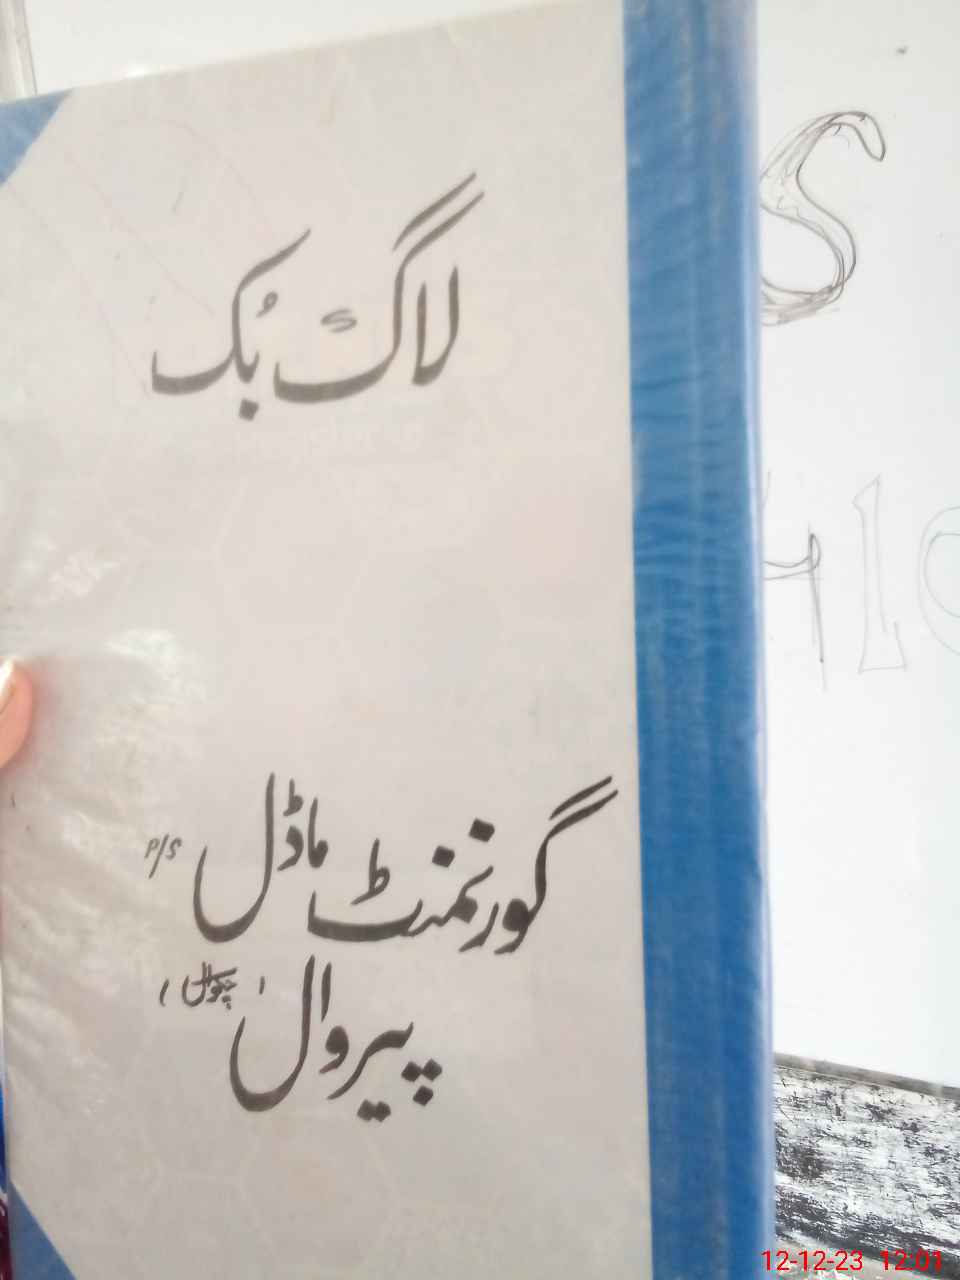 لاگ بُک
گورنمنٹ ماڈل P/S
پیروال (چکوال)
S
410
12-12-23 12:01